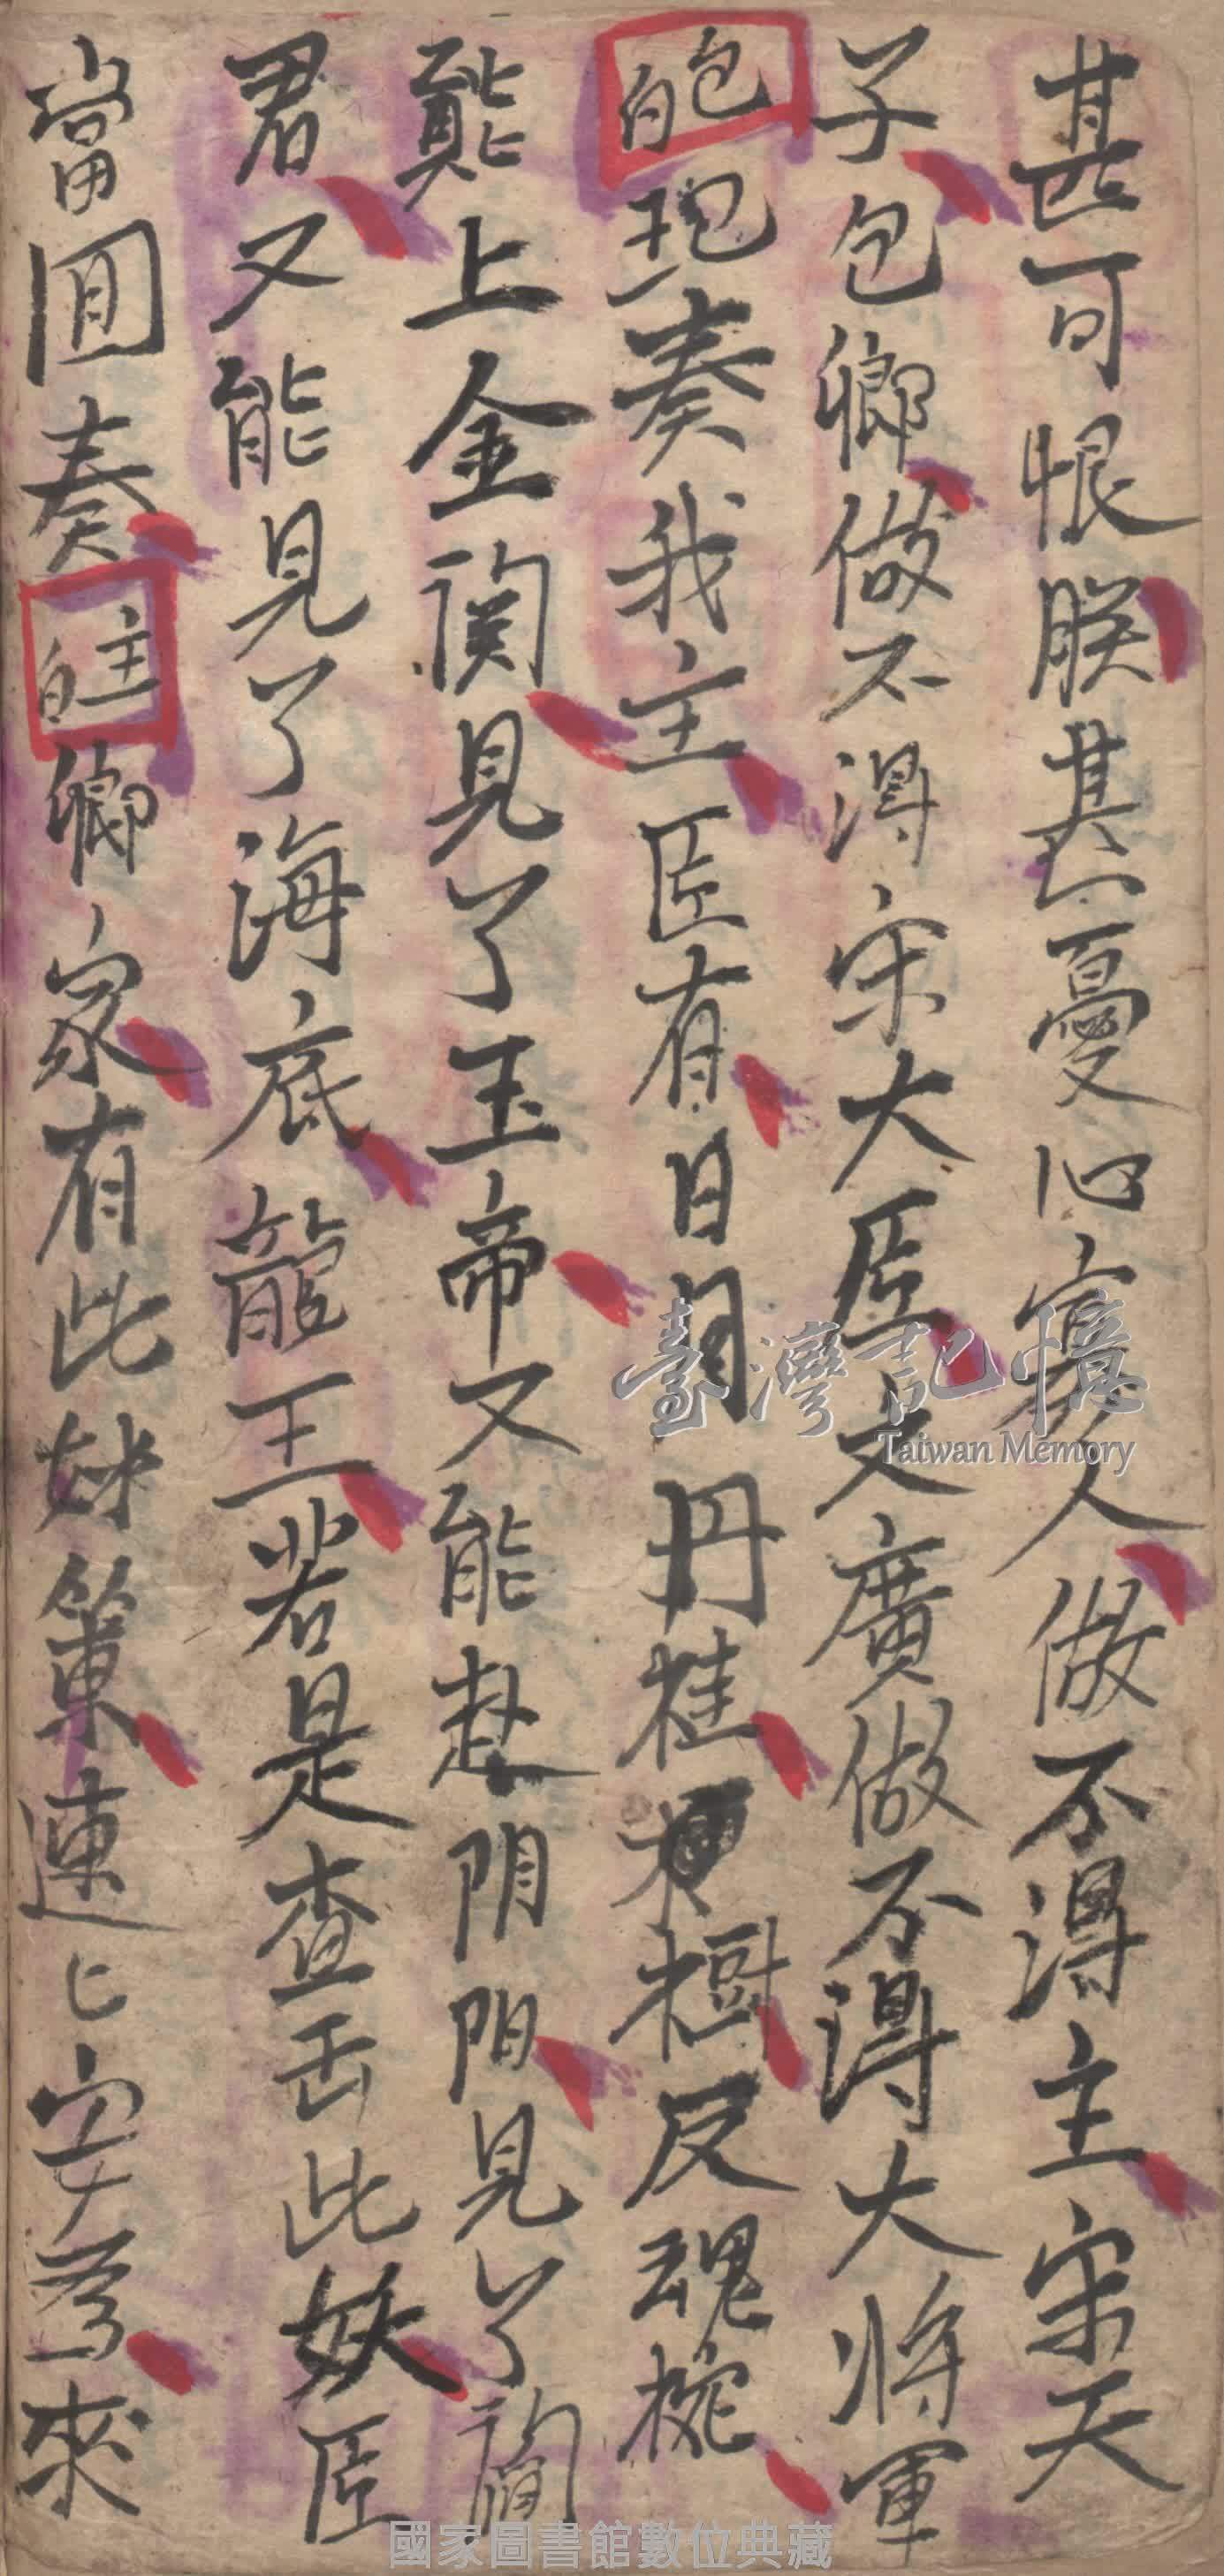 甚可恨朕甚憂心寡人做不得主宋天
子包卿做不得宋大臣文廣做不得大將軍
包白 現奏我主臣有日月丹桂 樹反魂梡
能上金 見了玉帝又能赴阴间見了閻
君又能見了海底龍王若是查出此妖臣
當面奏 主白 卿家有此妙策連匕安為來
臺灣記憶
Taiwan Memory
國家圖書館數位典藏